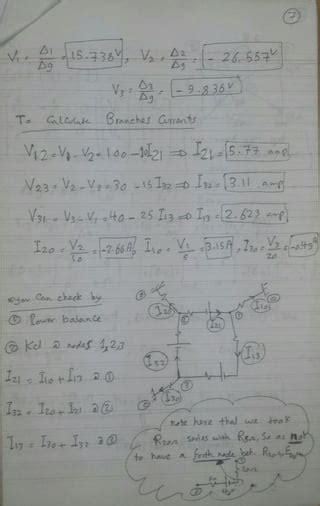 7
V1 = Δ1/Δg = 15.738V, V2 = Δ2/Δg = -26.557V
V3 = Δ3/Δg = -9.836V
To Calculate Branches Currents
V12 = V1 - V2 = 100 - 10I21 ⇒ I21 = 5.77 amp
V23 = V2 - V3 = 30 - 15I32 ⇒ I32 = 3.11 amp
V31 = V3 - V1 = 40 - 25I13 ⇒ I13 = 2.623 amp
I20 = V2/10 = -2.66A, I10 = V1/5 = 3.15A, I30 = V3/20 = -0.49A
you can check by
① Power balance
② KCL @ nodes 1,2,3
I21 = I10 + I13 @ ①
I32 = I20 + I21 @ ②
I13 = I30 + I32 @ ③
I20
I21
I10
I13
I32
I30
note here that we took
series with
so as not
to have a fourth node bet.